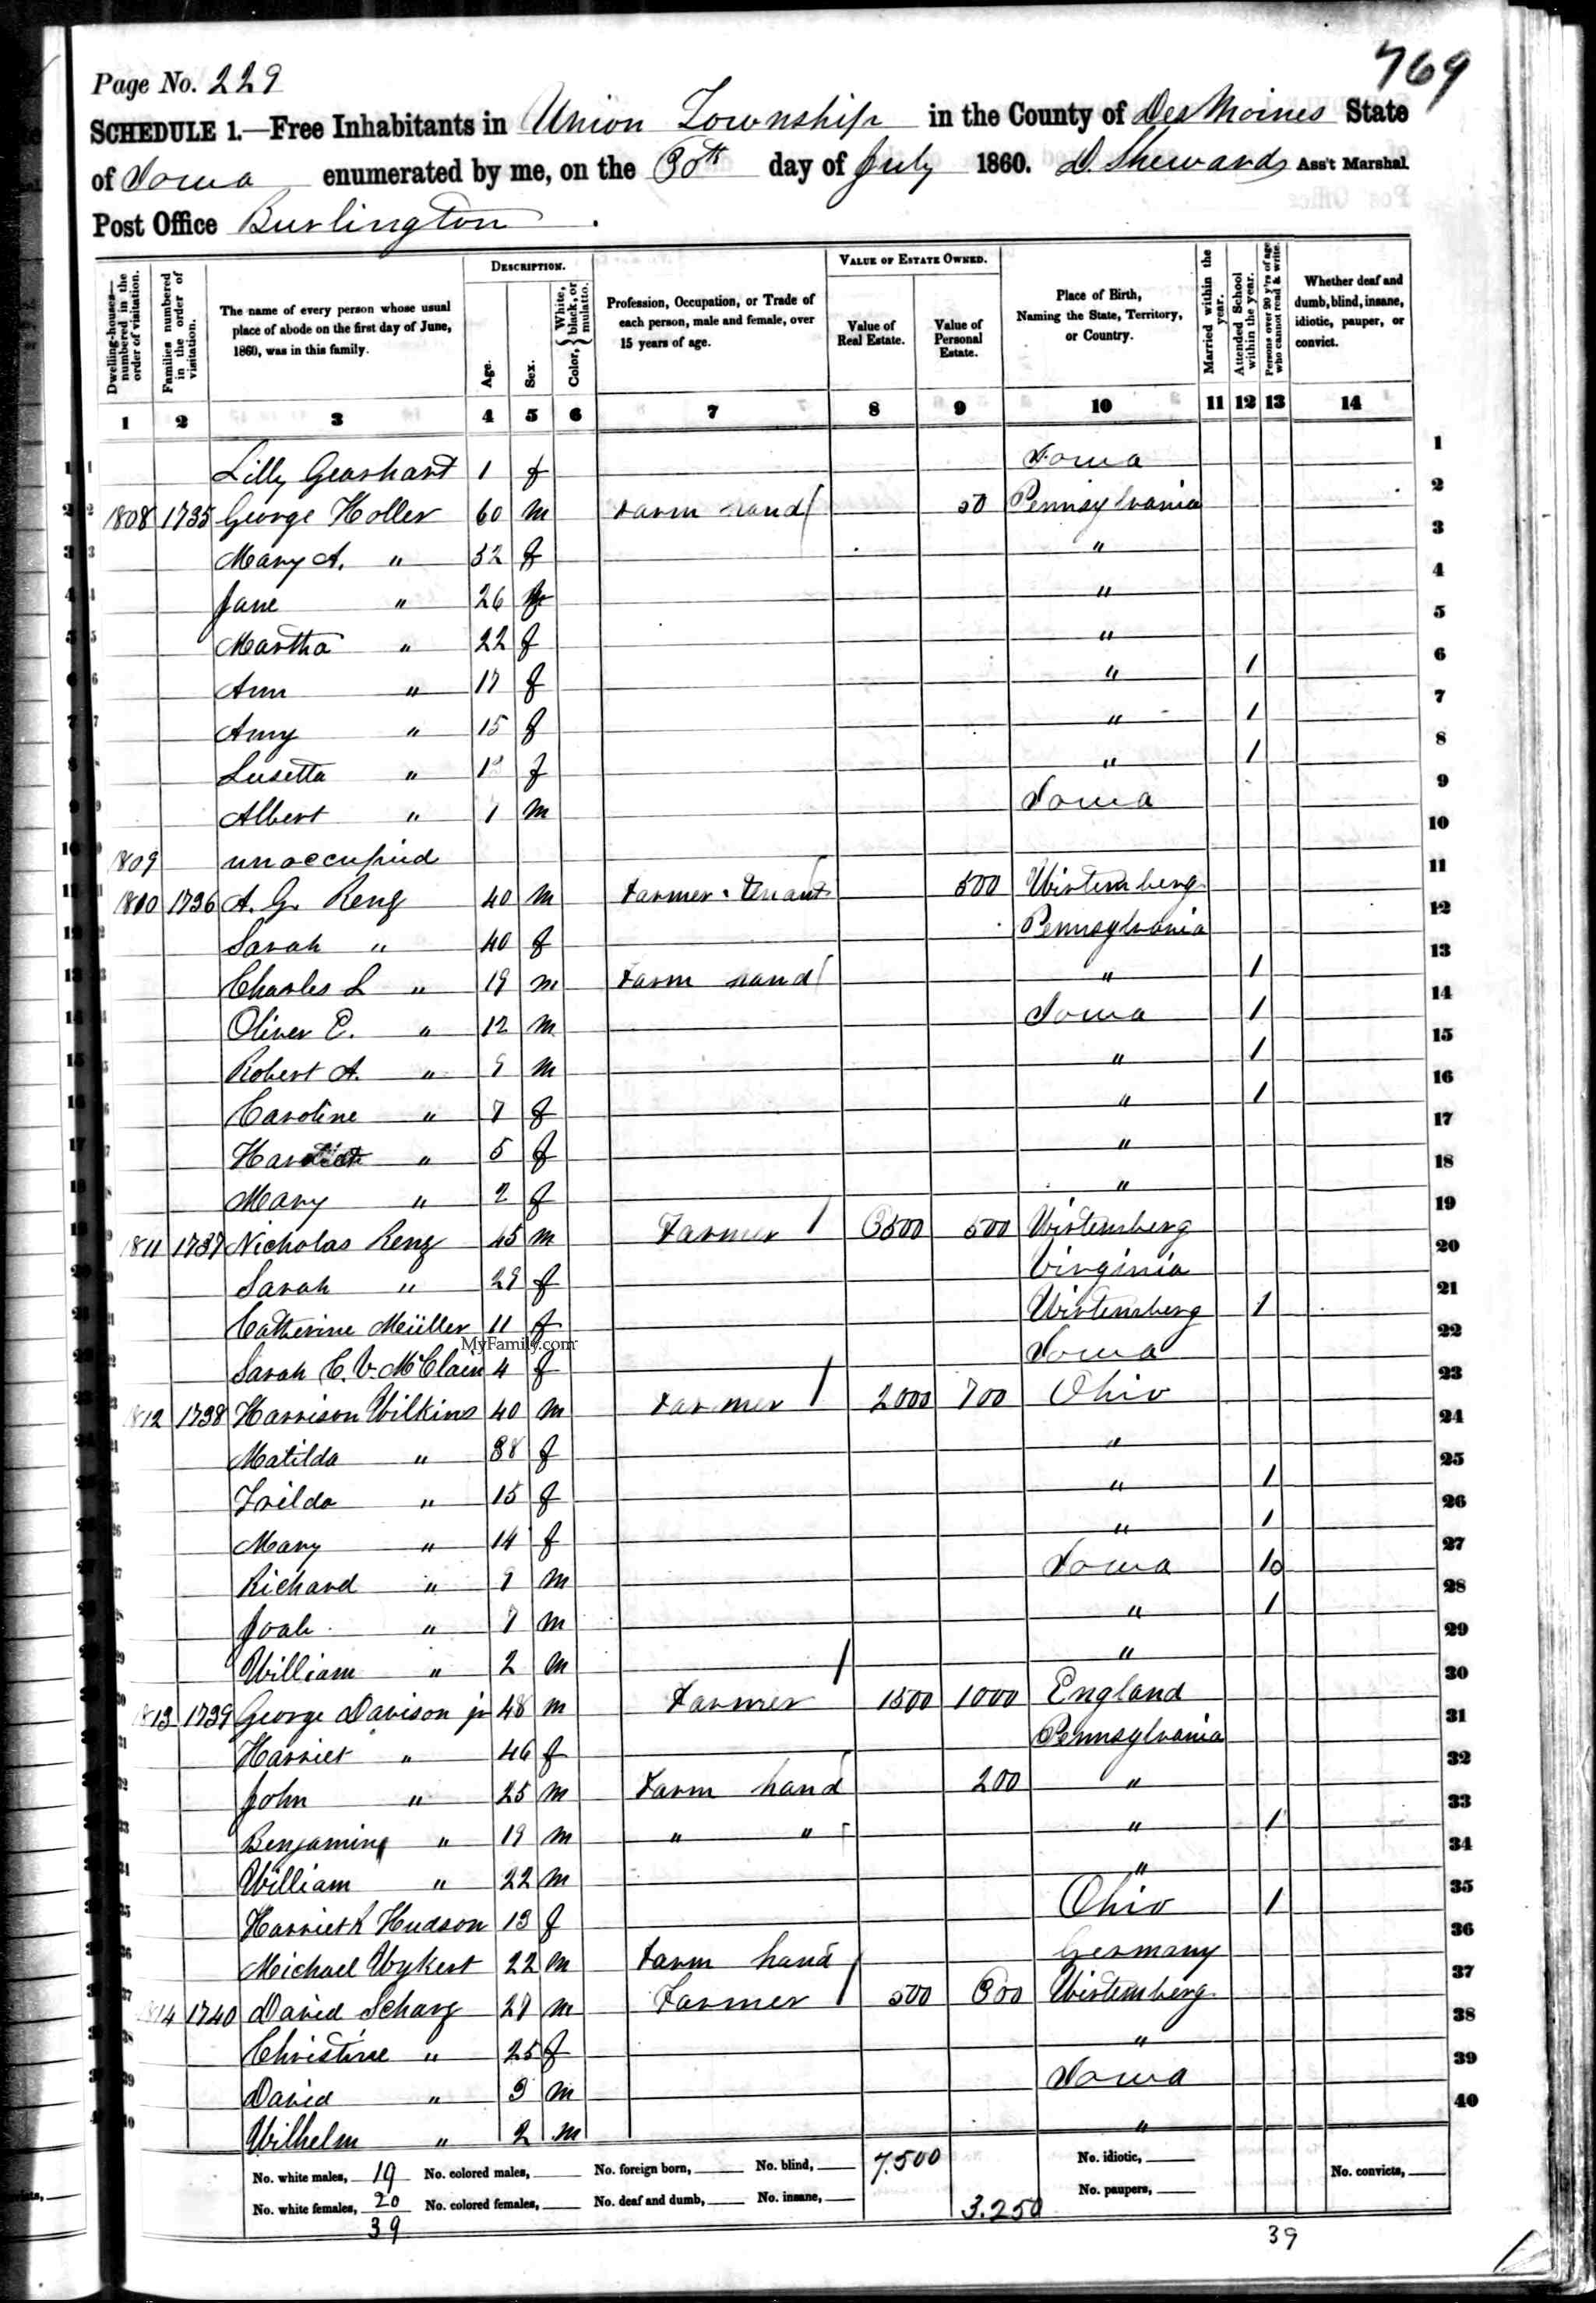 769
Page No. 229
SCHEDULE 1.—Free Inhabitants in Union Township in the County of Des Moines State
of Iowa enumerated by me, on the 30th day of July 1860. D. Shewards Ass't Marshal.
Post Office Burlington.
Dwelling-houses—numbered in the order of visitation.
Families numbered in the order of visitation.
The name of every person whose usual place of abode on the first day of June, 1860, was in this family.
DESCRIPTION.
Age.
Sex.
Color, { White, black, or mulatto.
Profession, Occupation, or Trade of each person, male and female, over 15 years of age.
VALUE OF ESTATE OWNED.
Value of Real Estate.
Value of Personal Estate.
Place of Birth, Naming the State, Territory, or Country.
Married within the year.
Attended School within the year.
Persons over 20 y'rs of age who cannot read & write.
Whether deaf and dumb, blind, insane, idiotic, pauper, or convict.
1 2 3 4 5 6 7 8 9 10 11 12 13 14
1 Lilly Gearhart 1 f Iowa 1
2 1808 1735 George Holler 60 m Farm hand 50 Pennsylvania 2
3 Mary A. " 52 f " 3
4 Jane " 26 f " 4
5 Martha " 22 f " 5
6 Ann " 17 f " 1 6
7 Amy " 15 f " 1 7
8 Lusetta " f " 1 8
9 Albert " 1 m Iowa 9
10 1809 unoccupied 10
11 1810 1736 A. G. Reng 40 m Farmer. Tenant 500 Wirtemberg 11
12 Sarah " 40 f Pennsylvania 12
13 Charles L " 19 m Farm hand " 1 13
14 Oliver E. " 12 m Iowa 1 14
15 Robert A. " 9 m " 1 15
16 Caroline " 7 f " 1 16
17 " 5 f " 17
18 Mary " 2 f " 18
19 1811 1737 Nicholas Reng 45 m Farmer 3500 500 Wirtemberg 19
20 Sarah " 29 f Virginia 20
21 Catherine Müller 11 f Wirtemberg 1 21
MyFamily.com
22 Sarah C. V. McClain 4 f Iowa 22
23 1812 1738 Harrison Wilkins 40 m Farmer 2000 700 Ohio 23
24 Matilda " 38 f " 24
25 " 15 f " 1 25
26 Mary " 14 f " 1 26
27 Richard " 9 m Iowa 1 27
28 Joab " 7 m " 1 28
29 William " 2 m " 29
30 1813 1739 George Davison jr 48 m Farmer 1500 1000 England 30
31 Harriet " 46 f Pennsylvania 31
32 John " 25 m Farm hand 200 " 32
33 Benjamin " 19 m " " " 1 33
34 William " 22 m " 34
35 Harriet Hudson 13 f Ohio 1 35
36 Michael Wykert 22 m Farm hand Germany 36
37 1814 1740 David Scharg 29 m Farmer 500 300 Wirtemberg 37
38 Christine " 25 f " 38
39 David " 3 m Iowa 39
40 Wilhelm " 2 m " 40
No. white males, 19 No. colored males, No. foreign born, No. blind, 7.500 No. idiotic, No. convicts,
No. white females, 20 No. colored females, No. deaf and dumb, No. insane, 3.250 No. paupers,
39 39